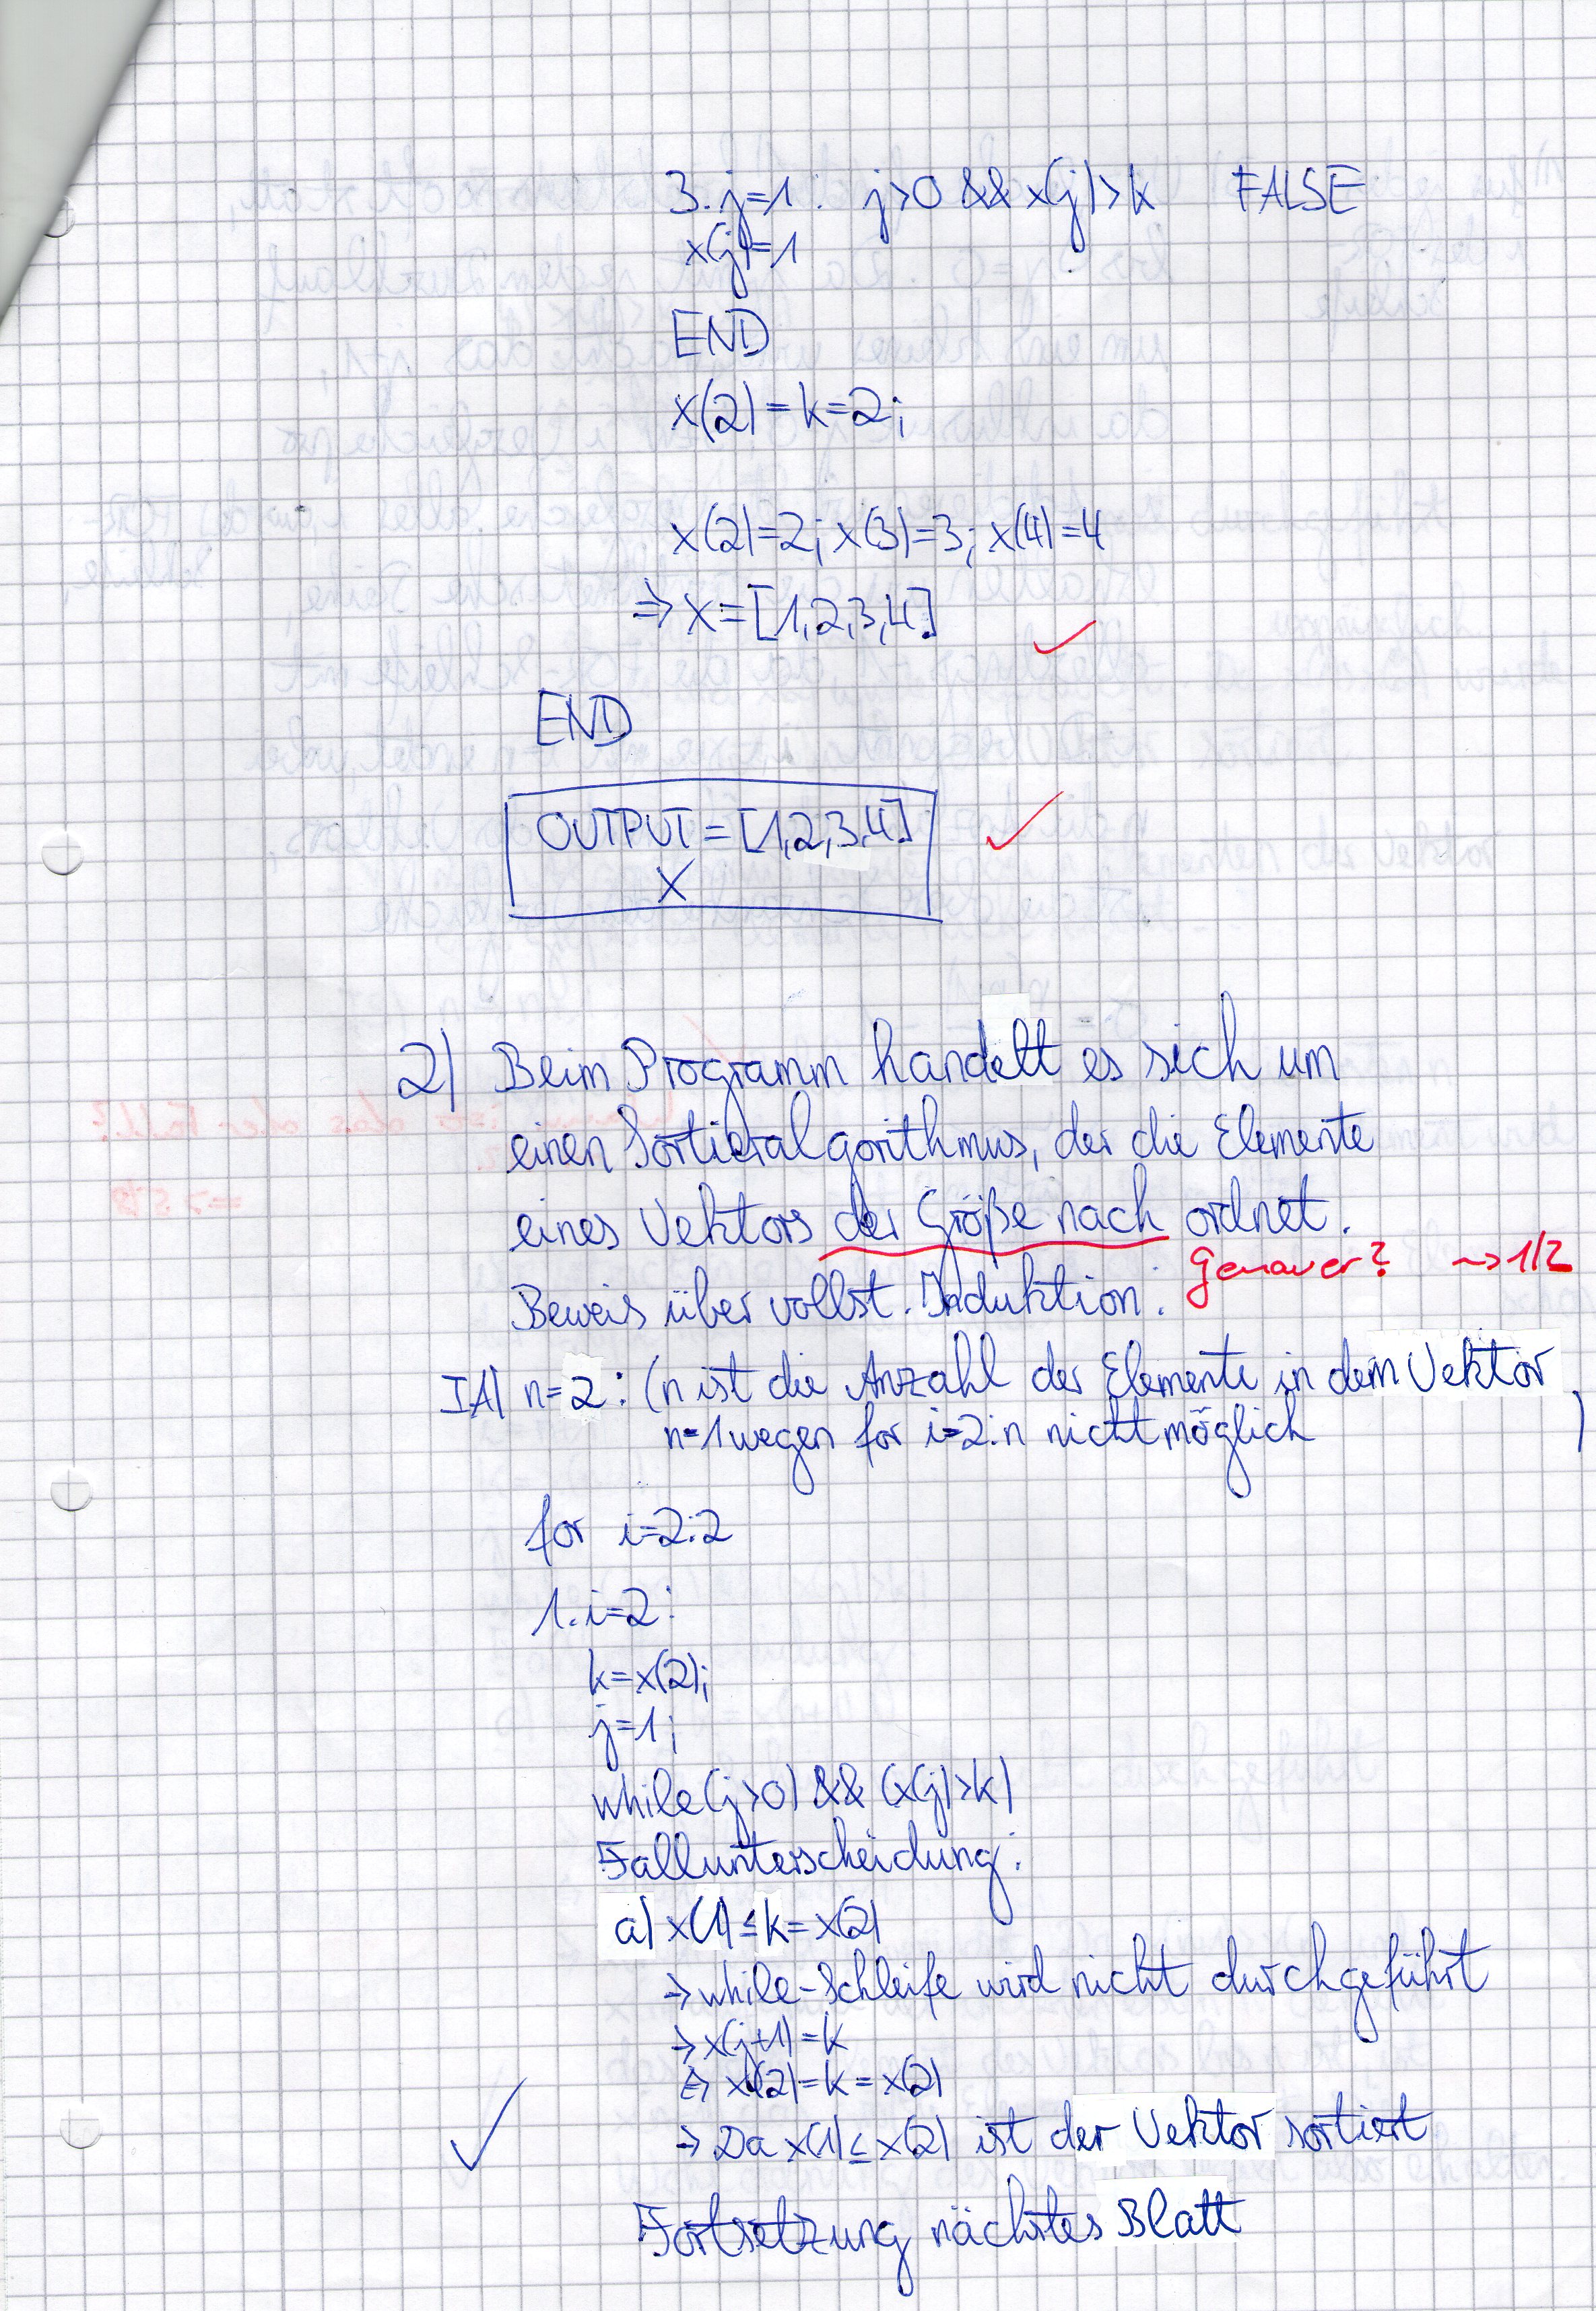 3. j=1: j>0 && x(j)>k FALSE
x(j)=1
END
x(2)=k=2;
x(2)=2; x(3)=3; x(4)=4
⇒ x=[1,2,3,4]
END
OUTPUT = [1,2,3,4]
X
2) Beim Programm handelt es sich um
einen Sortieralgorithmus, der die Elemente
eines Vektors der Größe nach ordnet.
Genauer? ~> 1/2
Beweis über vollst. Induktion:
IA) n=2: (n ist die Anzahl der Elemente in dem Vektor
n=1 wegen for i=2:n nicht möglich )
for i=2:2
1. i=2:
k=x(2);
j=1;
while (j>0) && (x(j)>k)
Fallunterscheidung:
a) x(1)≤k=x(2)
→ while-Schleife wird nicht durchgeführt
→ x(j+1)=k
⇒ x(2)=k=x(2)
→ Da x(1)≤x(2) ist der Vektor sortiert
Fortsetzung nächstes Blatt